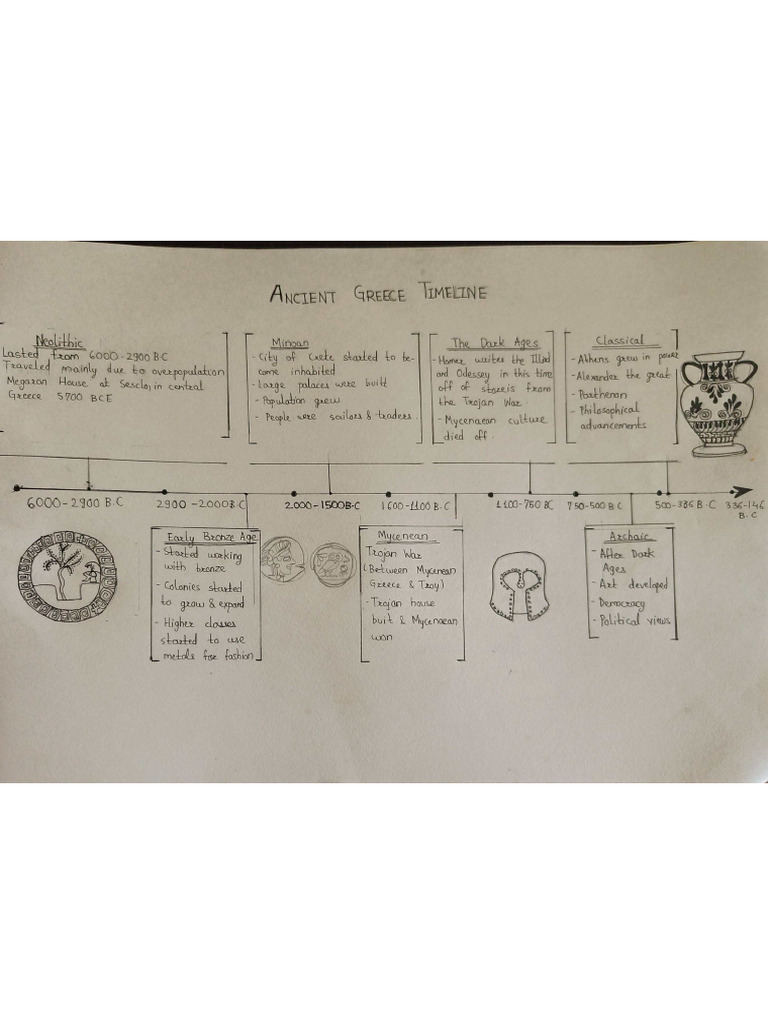 ANCIENT GREECE TIMELINE
Neolithic
Lasted from 6000-2900 B.C
Traveled mainly due to overpopulation
Megaron House at Sesclo, in central
Greece 5700 BCE
Minoan
- City of Crete started to be-
come inhabited
- Large palaces were built
- Population grew
- People were sailors & traders.
The Dark Ages
- Homer writes the Illiad
and Odessey in this time
off of storeis from
the Trojan War.
- Mycenaean culture
died off.
Classical
- Athens grew in power
- Alexander the great
- Parthenon
- Philosophical
advancements
6000-2900 B.C
2900-2000B.C
2000-1500B.C
1600-1100 B.C
1100-750 BC
750-500 B.C
500-336 B.C
336-146
B.C
Early Bronze Age
- Started working
with bronze
- Colonies started
to grow & expand
- Higher classes
started to use
metals for fashion
Mycenean
Trojan War
(Between Mycenean
Greece & Troy)
- Trojan house
built & Mycenaean
won
Archaic
- After Dark
Ages
- Art developed
- Democracy
- Political views